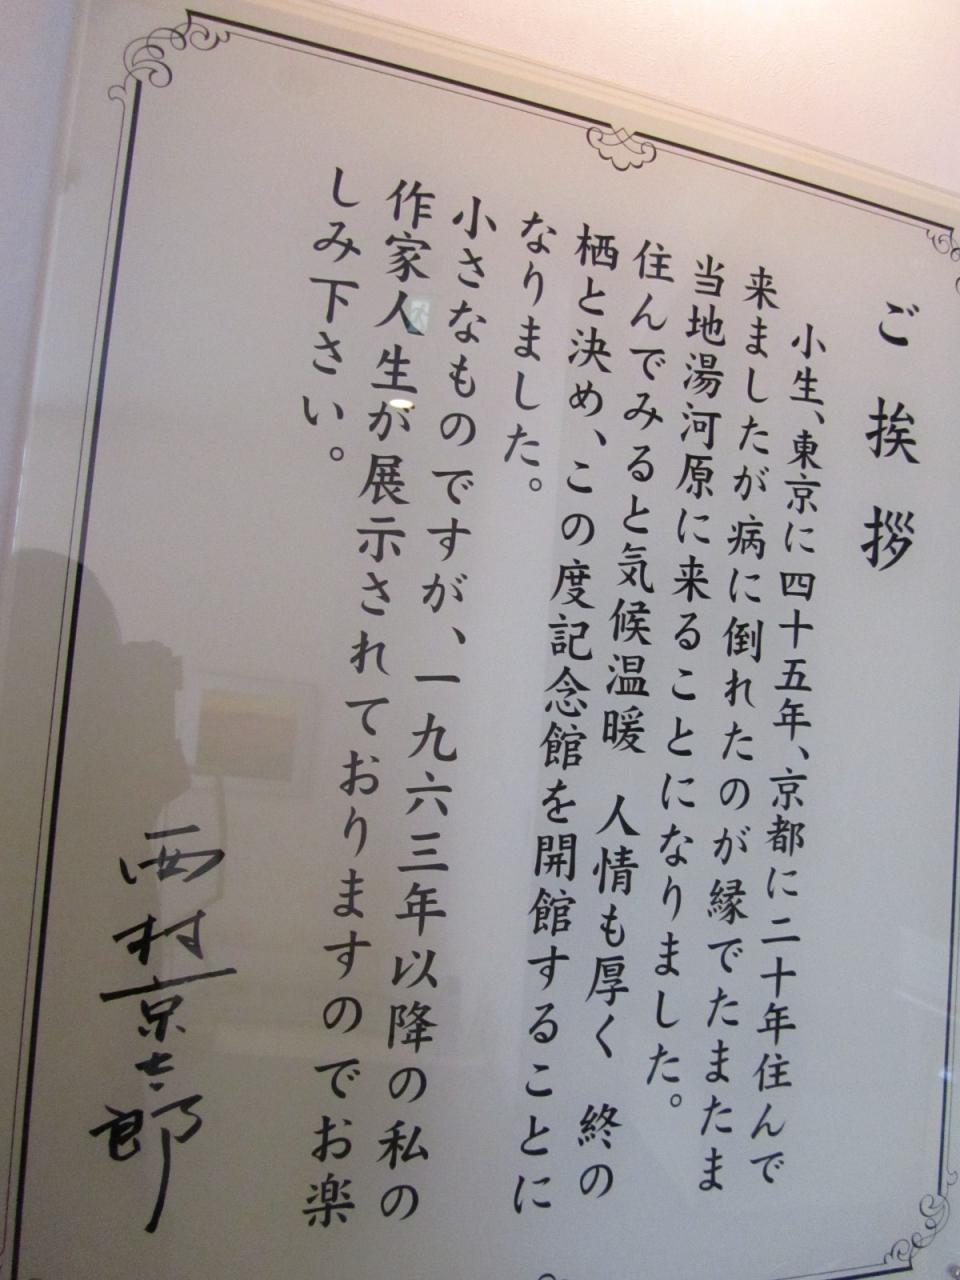 ご挨拶
小生、東京に四十五年、京都に二十年住んで
来ましたが病に倒れたのが縁でたまたま
当地湯河原に来ることになりました。
住んでみると気候温暖 人情も厚く 終の
栖と決め、この度記念館を開館することに
なりました。
小さなものですが、一九六三年以降の私の
作家人生が展示されておりますのでお楽
しみ下さい。
西村京太郎